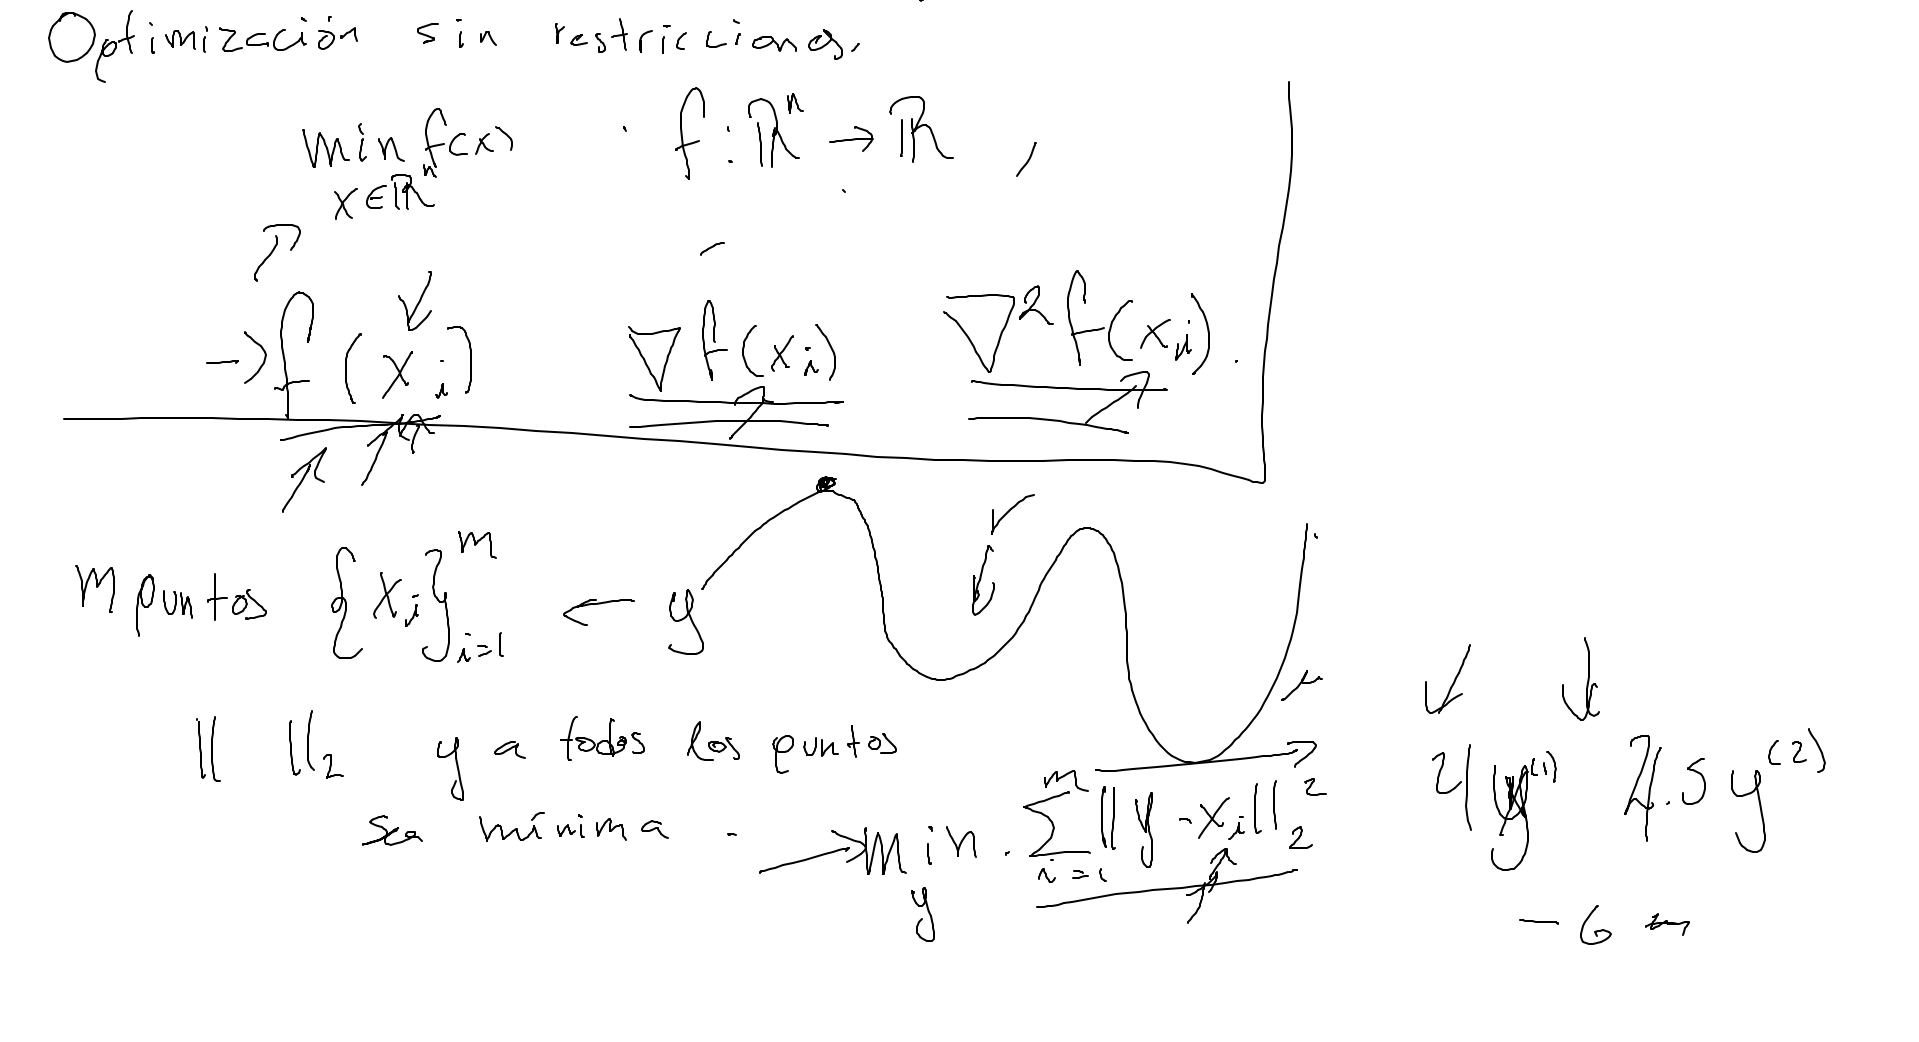 Optimización sin restricciones.
min f(x) f : ℝⁿ → ℝ ,
x∈ℝⁿ
→ f(x_i) ∇f(x_i) ∇²f(x_i).
m puntos {x_i}_{i=1}^m ← y
‖ ‖₂ y a todos los puntos
sea mínima.
→ min_y Σ_{i=1}^m ‖y - x_i‖₂²
4 y⁽¹⁾ 7.5 y⁽²⁾
- 6